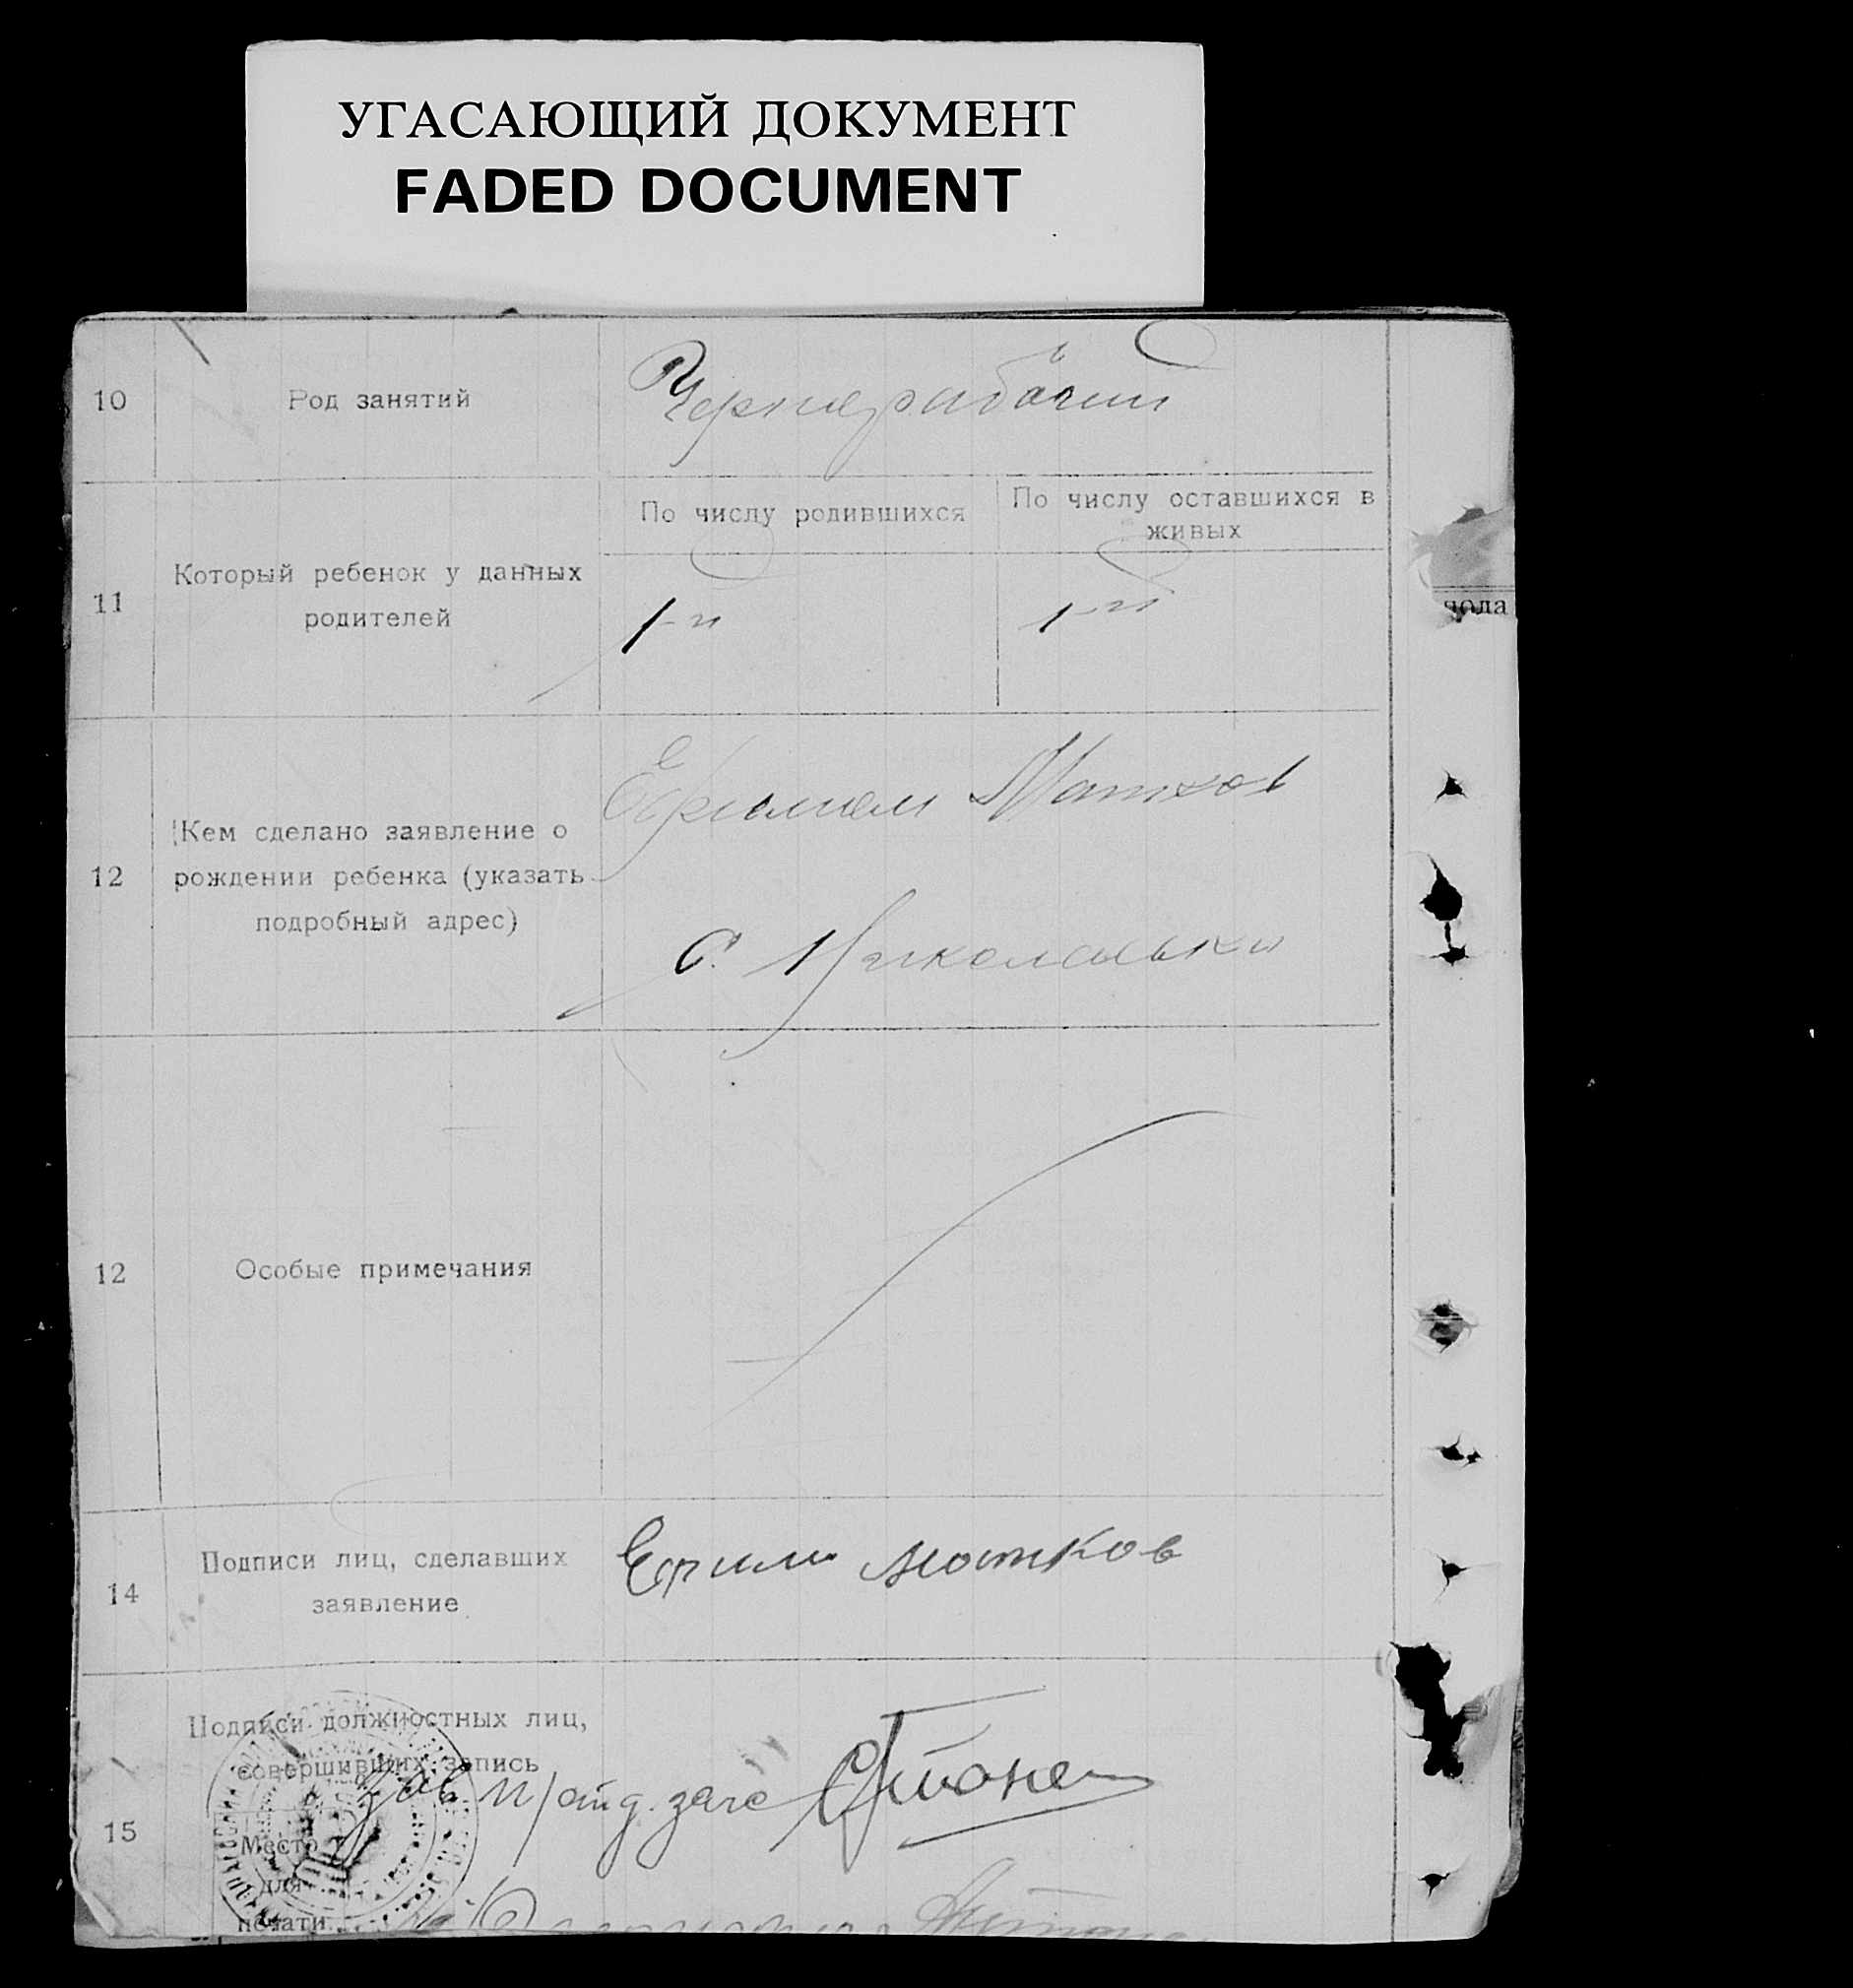 УГАСАЮЩИЙ ДОКУМЕНТ
FADED DOCUMENT
10 Род занятий Чернорабочий
По числу родившихся По числу оставшихся в
живых
11 Который ребенок у данных
родителей 1-й 1-й
чола
Ефимом Матков
12 Кем сделано заявление о
рождении ребенка (указать
подробный адрес)
С. Николаевка
12 Особые примечания
14 Подписи лиц, сделавших
заявление
Ефим Матков
Подписи должностных лиц,
совершивших запись
Зав п/отд. загс
15 Место
для
печати